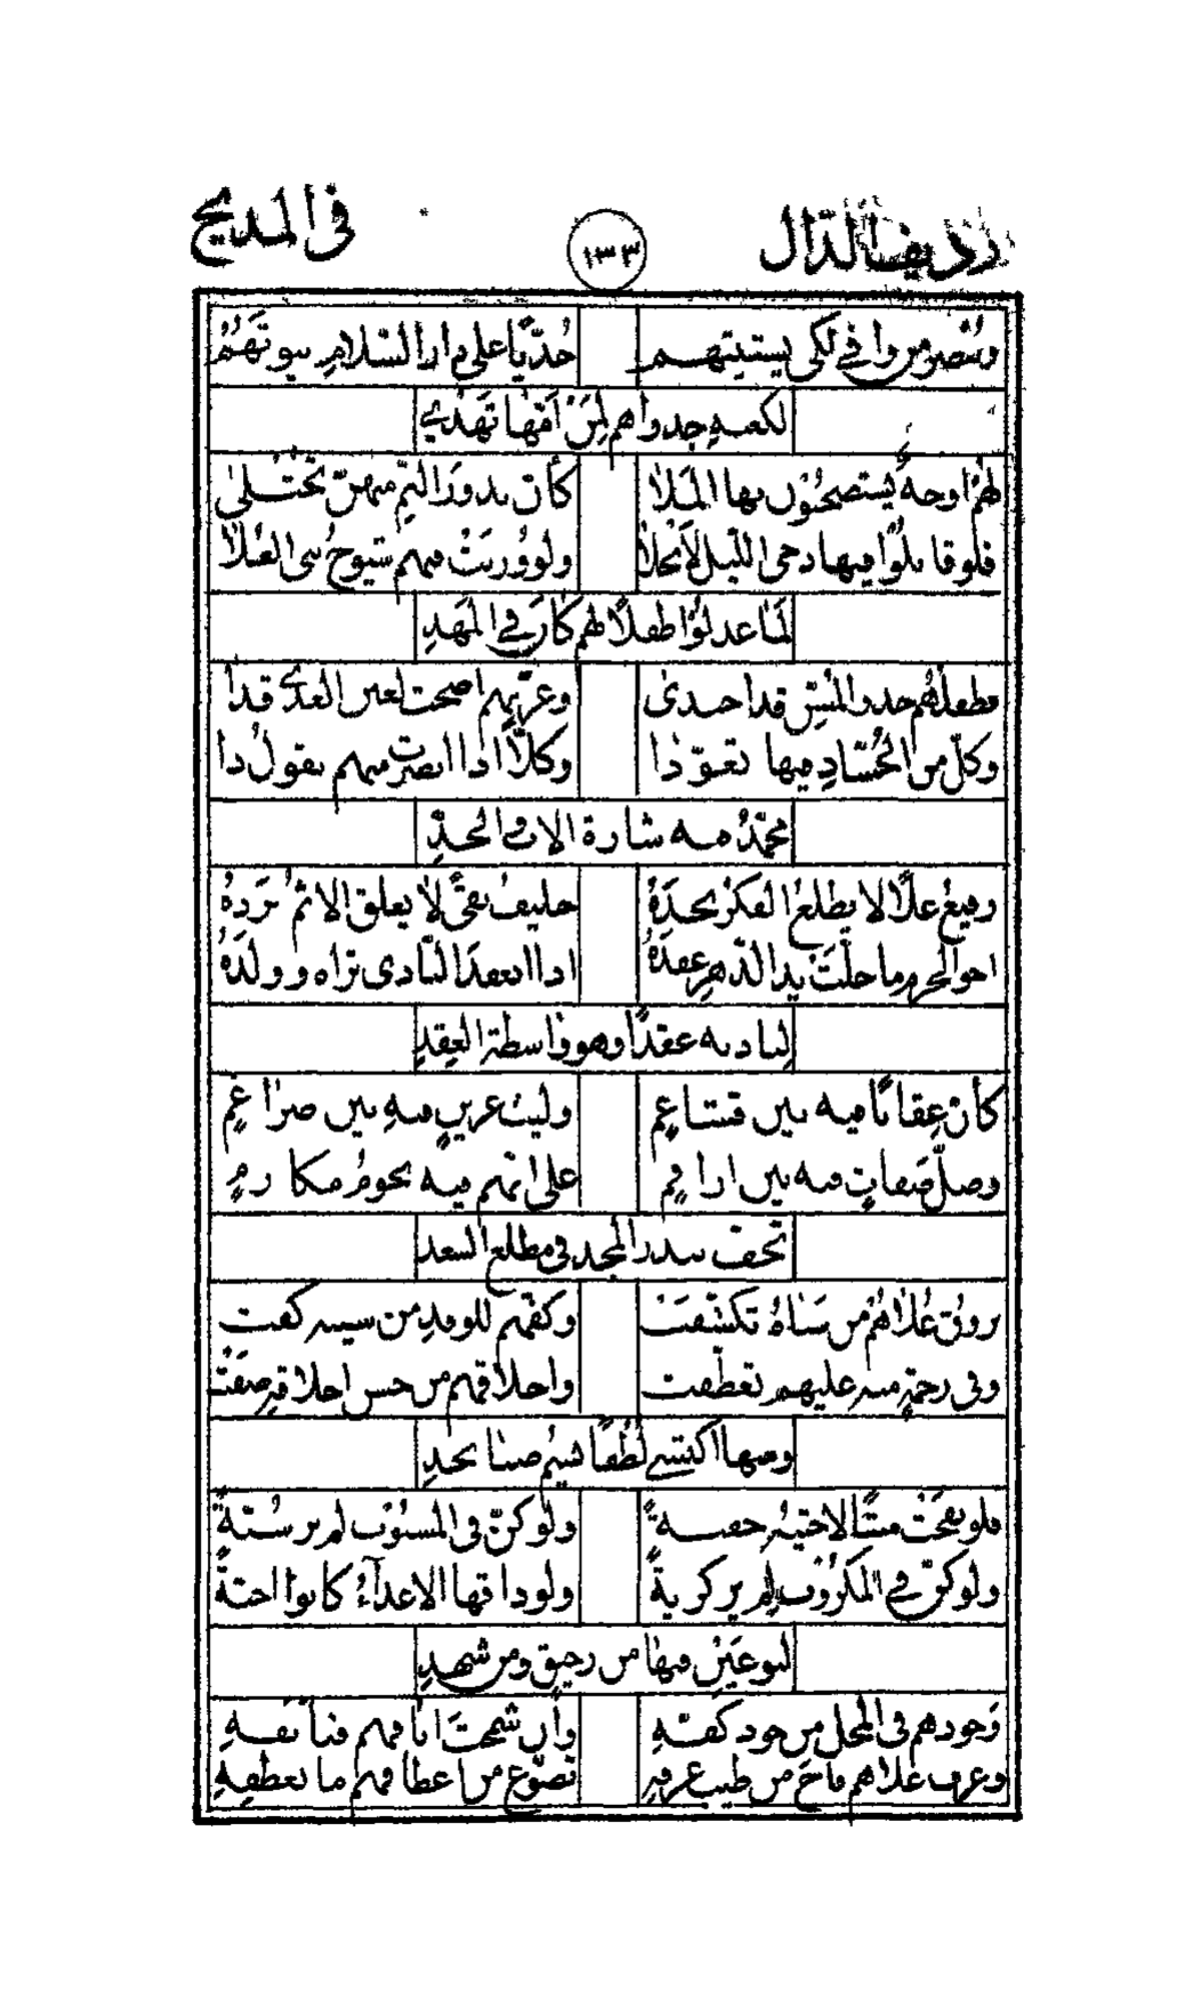 رديف الدال ١٣٣ في المديح
وينصر من وافى لكي يستبيتهم حدّيًا على دار السّلام بيوتهم
لكعبة جدواهم لمن أمّها تهدي
لهم أوجهٌ يستصبحون بها الملا كأن بدور التمّ منهنّ تجتلى
فلو قابلوا فيها دجى الليل لانجلا ولو وُزنت منهم شيوخ بني العلا
لما عدلوا طفلًا لهم كان في المهد
فطفلهم حدو المسنّ قد احتدى وعزّتهم اضحت لعين العدى قدا
وكلّ من الحسّاد فيها تعوّذا وكلّا اذا ابصرت منهم يقول ذا
محمّدٌ فيه شارة الاب والجدّ
رفيع علًا لا يطلع الفكر نجده حليف تقى لا يعلق الاثم برده
اخو الحزم ما حلّت يد الدّهر عقده اذا انعقد النّادي تراه وولده
لناديه عقدًا وهو واسطة العقد
كأن عقابًا فيه بين قشاعم وليث عرين فيه بين ضراغم
وصلّ صفات فيه بين اراقم على انهم فيه نجوم مكارم
تحف ببدر المجد في مطلع السعد
بروق علاهم من سناه تكشّفت وكفّهم للوفد من سيبه كفت
وفي رحمة منه عليهم تعطّفت واخلاقهم من حسن اخلاقه صفت
ومنها اكتسى لطفًا شيم صبا نجد
فلو نفحت ميتًا لاحيته حقبةً ولو كنّ في المسنوب لم ير سبّةً
ولو كنّ في المكروب لم ير كربةً ولو ذاقها الاعداء كانوا احبّةً
لنوعين فيها من رحيق ومن شهد
وجودهم في المحل من جود كفّه وان شمخت انافهم فبأنفه
وعرف علاهم فاح من طيب عرفه تضوّع من اعطافهم ما تعطفه